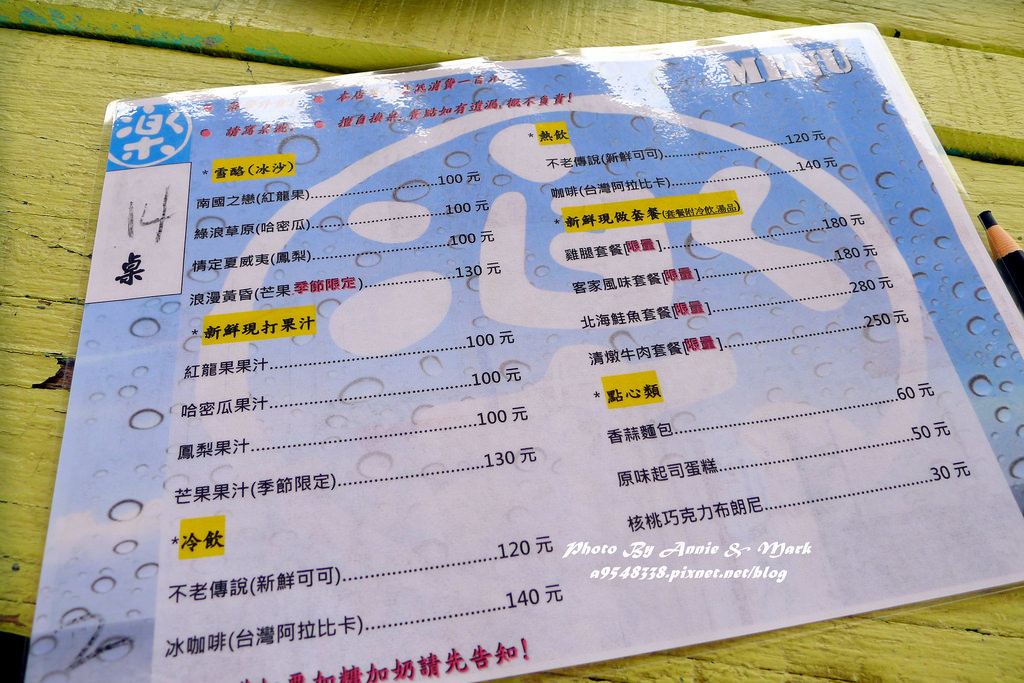 MENU
本店
消費一百元
擅自換桌,餐點如有遺漏,概不負責!
樂
14
桌
*雪酪(冰沙)
南國之戀(紅龍果)..........100元
綠浪草原(哈密瓜)..........100元
情定夏威夷(鳳梨)..........100元
浪漫黃昏(芒果.季節限定)..........130元
*新鮮現打果汁
紅龍果果汁..........100元
哈密瓜果汁..........100元
鳳梨果汁..........100元
芒果果汁(季節限定)..........130元
*冷飲
不老傳說(新鮮可可)..........120元
冰咖啡(台灣阿拉比卡)..........140元
加糖加奶請先告知!
*熱飲
不老傳說(新鮮可可)..........120元
咖啡(台灣阿拉比卡)..........140元
*新鮮現做套餐(套餐附冷飲.湯品)
雞腿套餐[限量]..........180元
客家風味套餐[限量]..........180元
北海鮭魚套餐[限量]..........280元
清燉牛肉套餐[限量]..........250元
*點心類
香蒜麵包..........60元
原味起司蛋糕..........50元
核桃巧克力布朗尼..........30元
Photo By Annie & Mark
a9548338.pixnet.net/blog